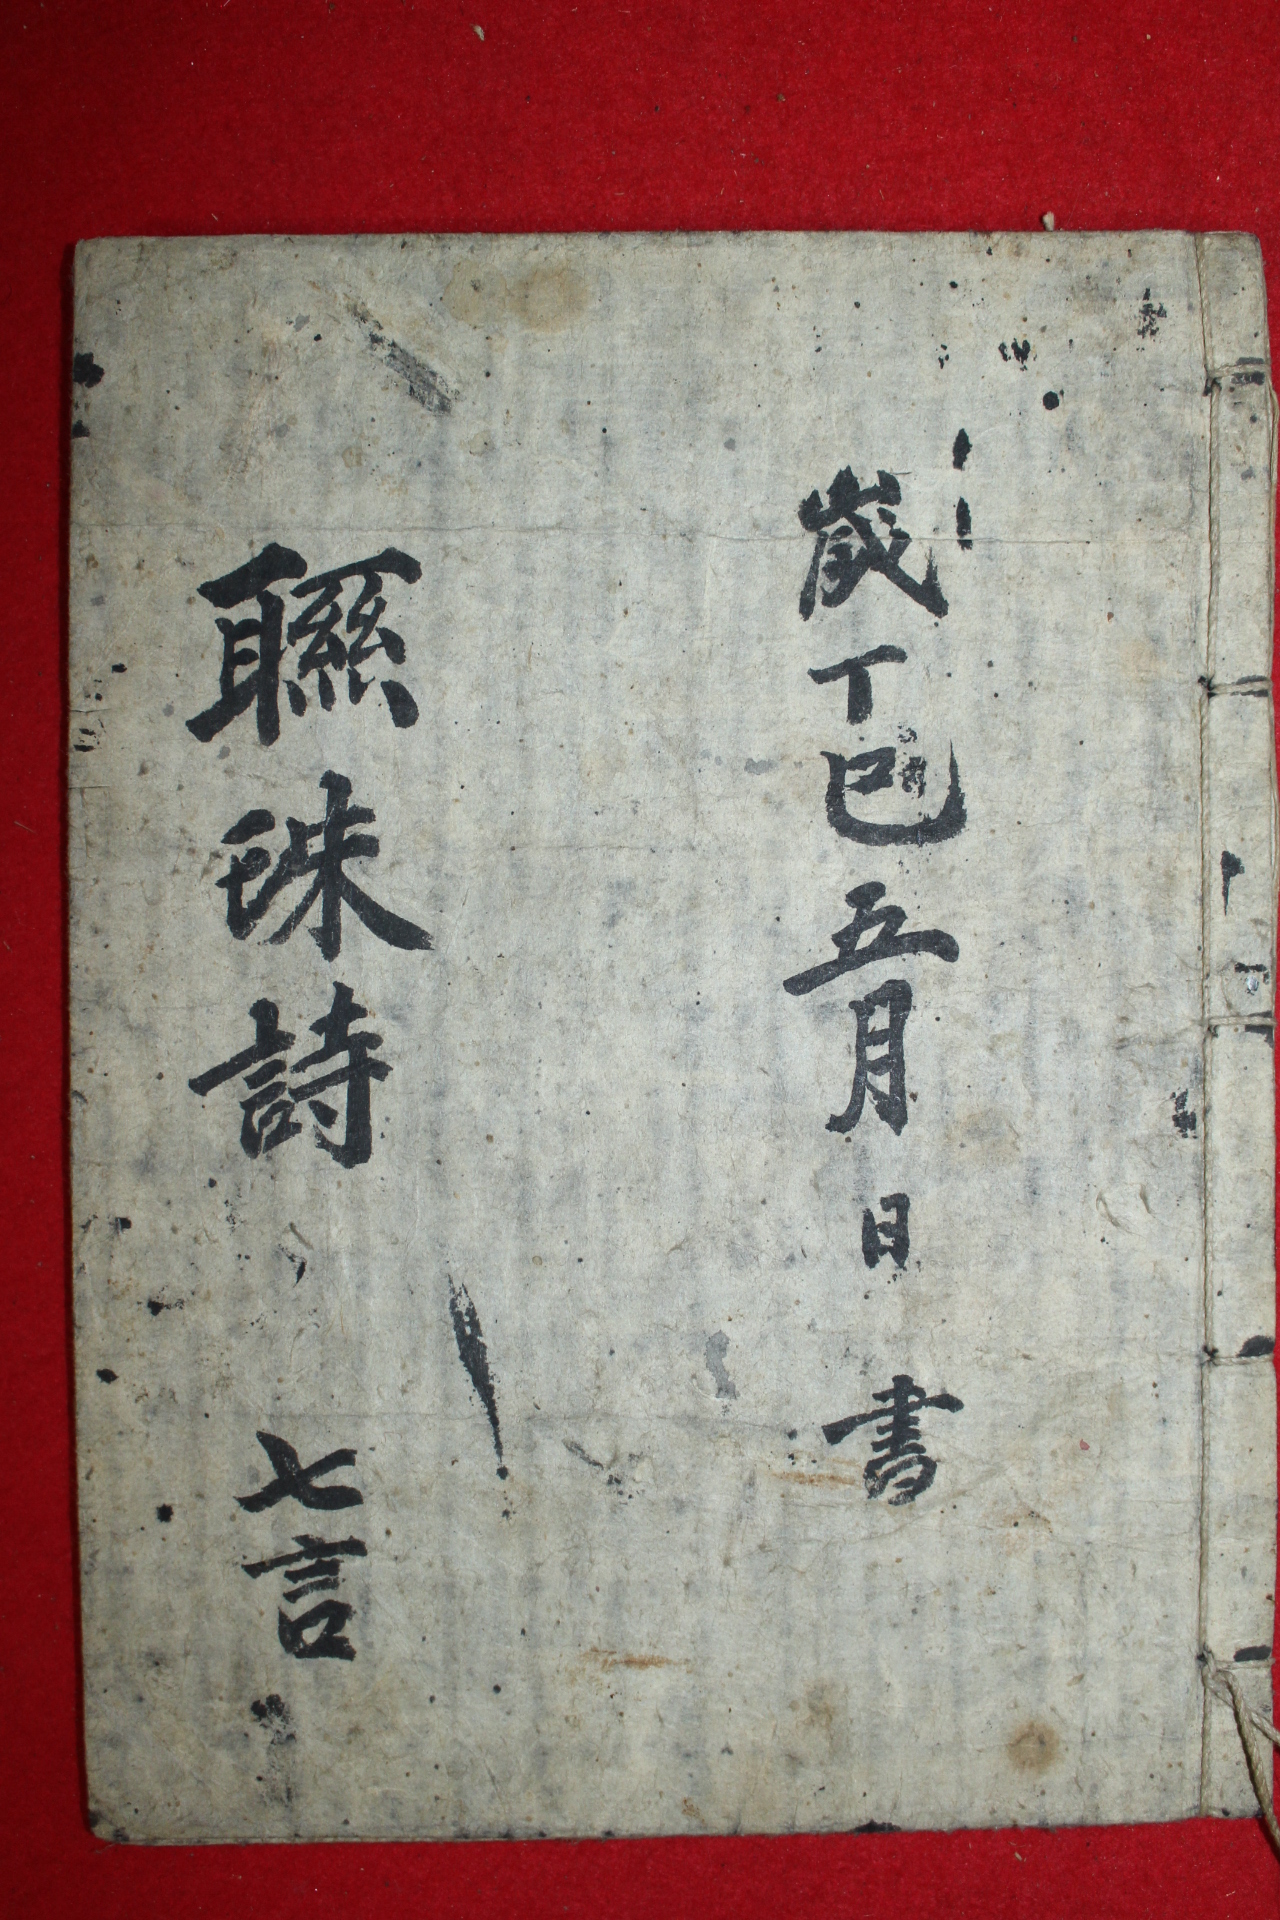 歲丁巳五月日書
聮珠詩 七言